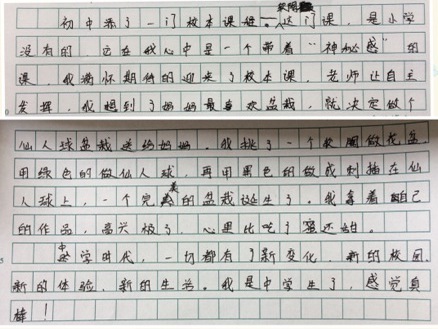 初中开了一门校本课程——软陶。这门课，是小学
没有的，它在我心中是一个带着“神秘感”的
课，我满怀期待的迎来了校本课，老师让自主
发挥，我想到了妈妈最喜欢盆栽，就决定做个
仙人球盆栽送给妈妈。我挑了一个软陶做花盆，
用绿色的做仙人球，再用黑色的做成刺插在仙
人球上，一个完美的盆栽诞生了。我拿着自己
的作品，高兴极了，心里比吃了蜜还甜。
中学时代，一切都有了新变化，新的校园，
新的体验，新的生活。我是中学生了，感觉真
棒！